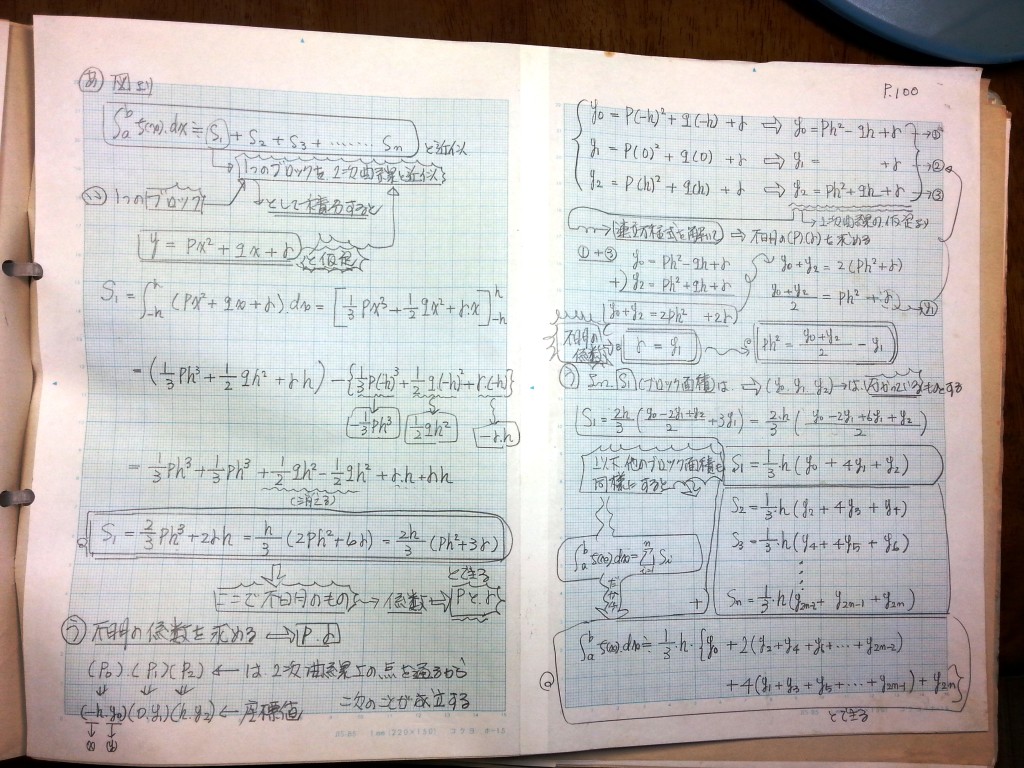 あ 図より
∫ₐᵇ f(x).dx ≒ S₁ + S₂ + S₃ + ...... Sn と近似
1つのブロックを2次曲線と近似
い 1つのブロック として積分すると
y = Px² + qx + r と仮定
S₁ = ∫₋ₕʰ (Px² + qx + r).dx = [1/3 Px³ + 1/2 qx² + r.x]₋ₕʰ
= (1/3 Ph³ + 1/2 qh² + rh) - {1/3 P(-h)³ + 1/2 q(-h)² + r(-h)}
-1/3 Ph³ 1/2 qh² -r.h
= 1/3 Ph³ + 1/3 Ph³ + 1/2 qh² - 1/2 qh² + r.h + rh
(消える)
S₁ = 2/3 Ph³ + 2rh = h/3 (2Ph² + 6r) = 2h/3 (Ph² + 3r)
とできる
ここで不明のもの → 係数 → Pとr
う 不明の係数を求める → P.r
(P₀).(P₁)(P₂) ← は2次曲線上の点を通るから
(-h.y₀)(0.y₁)(h.y₂) ← 座標値 次のことが成立する
(x) (y)
P.100
y₀ = P(-h)² + q(-h) + r ⇒ y₀ = Ph² - qh + r → ①
y₁ = P(0)² + q(0) + r ⇒ y₁ = + r → ②
y₂ = P(h)² + q(h) + r ⇒ y₂ = Ph² + qh + r → ③
→ 2次曲線の仮定より
連立方程式を解いて ⇒ 不明の(P)(r)を求める
① + ③ y₀ = Ph² - qh + r
+) y₂ = Ph² + qh + r
y₀ + y₂ = 2Ph² + 2r
y₀ + y₂ = 2(Ph² + r)
(y₀ + y₂)/2 = Ph² + r
不明の係数 r = y₁ Ph² = (y₀ + y₂)/2 - y₁
S₁ (ブロック面積)は ⇒ (y₀.y₁.y₂) → は分かっているものとする
S₁ = 2h/3 ((y₀ - 2y₁ + y₂)/2 + 3y₁) = 2.h/3 ((y₀ - 2y₁ + 6y₁ + y₂)/2)
以下他のブロック面積も同様にすると
S₁ = 1/3.h (y₀ + 4y₁ + y₂)
S₂ = 1/3.h (y₂ + 4y₃ + y₄)
S₃ = 1/3.h (y₄ + 4y₅ + y₆)
⋮
Sn = 1/3.h (y₂n₋₂ + y₂n₋₁ + y₂n)
∫ₐᵇ f(x).dx = Σⁿᵢ₌₁ Si
だから
+
∫ₐᵇ f(x).dx ≒ 1/3.h.{y₀ + 2(y₂ + y₄ + y₆ + ... + y₂n₋₂)
+ 4(y₁ + y₃ + y₅ + ... + y₂n₋₁) + y₂n}
とできる